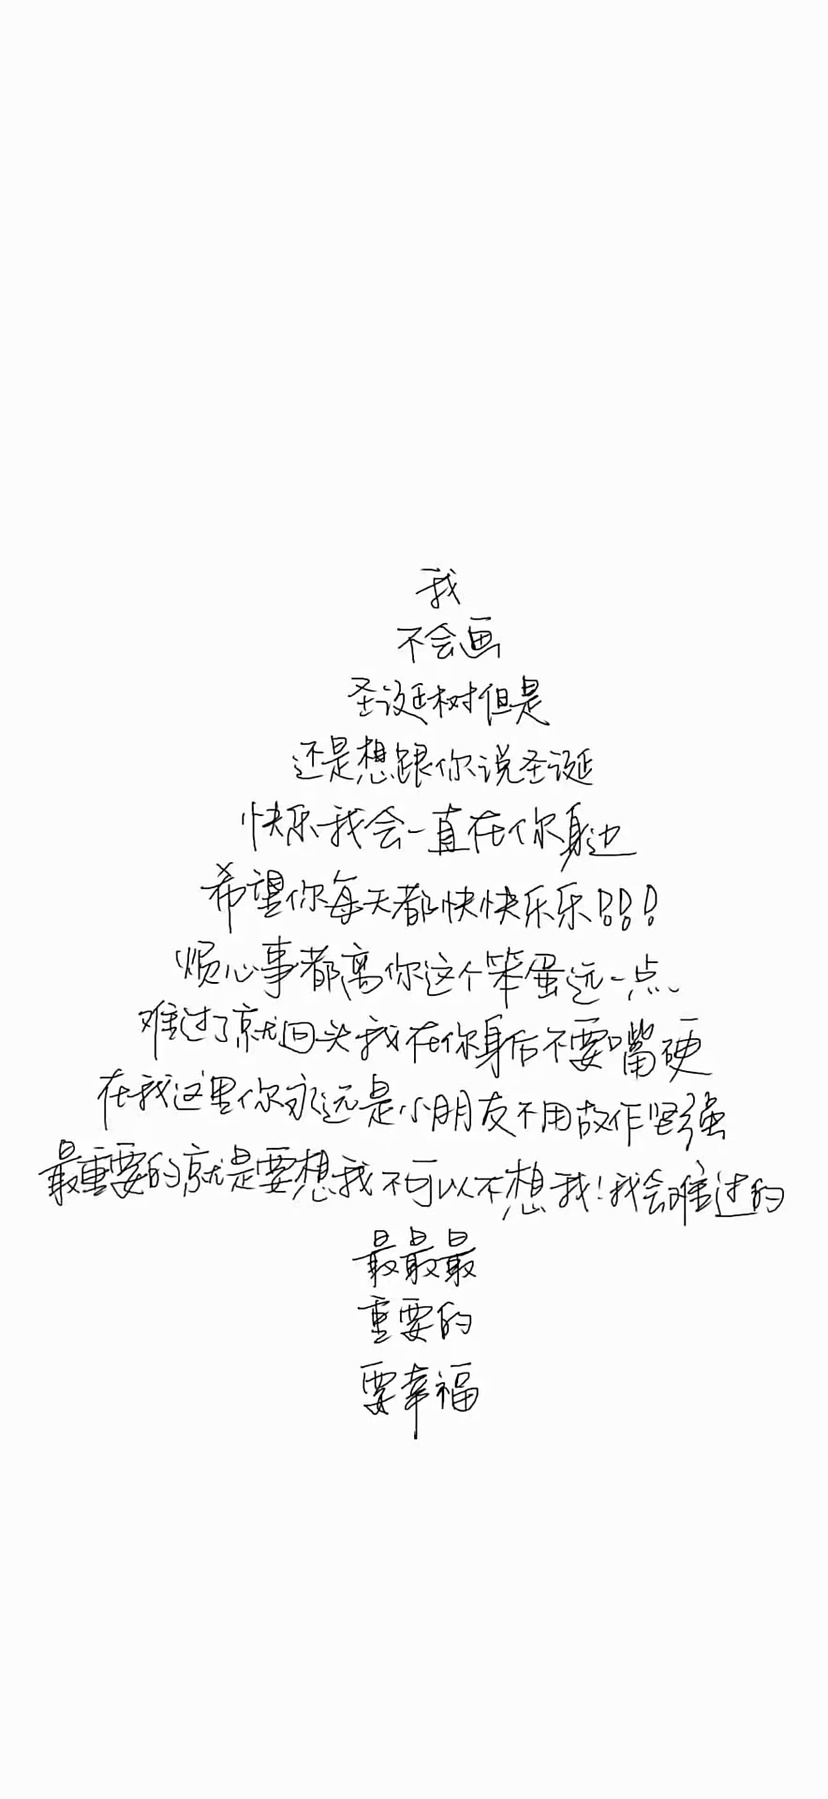 我
不会画
圣诞树但是
还是想跟你说圣诞
快乐我会一直在你身边
希望你每天都快快乐乐!!!
烦心事都离你这个笨蛋远一点、
难过了就回头我在你身后不要嘴硬
在我这里你永远是小朋友不用故作坚强
最重要的就是要想我不可以不想我!我会难过的
最最最
重要的
要幸福